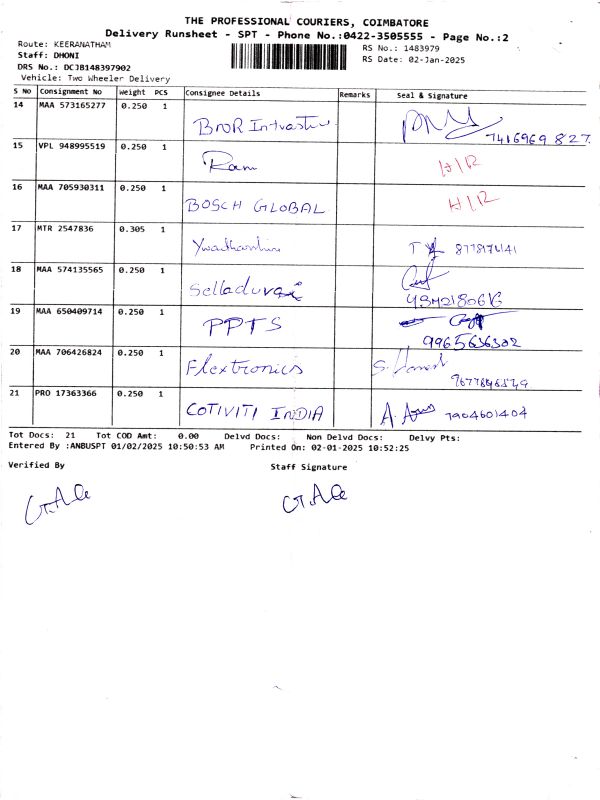 THE PROFESSIONAL COURIERS, COIMBATORE
Delivery Runsheet - SPT - Phone No.:0422-3505555 - Page No.:2
Route: KEERANATHAM
RS No.: 1483979
Staff: DHONI
RS Date: 02-Jan-2025
DRS No.: DCJB148397902
Vehicle: Two Wheeler Delivery
S No Consignment No Weight PCS Consignee Details Remarks Seal & Signature
14 MAA 573165277 0.250 1
7416969827
15 VPL 948995519 0.250 1 Ram H/R
16 MAA 705930311 0.250 1 BOSCH GLOBAL H/R
17 MTR 2547836 0.305 1
18 MAA 574135565 0.250 1 Selladurai
19 MAA 650409714 0.250 1 PPTS
9965636302
20 MAA 706426824 0.250 1 Flextronics
21 PRO 17363366 0.250 1 COTIVITI INDIA 7904601404
Tot Docs: 21 Tot COD Amt: 0.00 Delvd Docs: Non Delvd Docs: Delvy Pts:
Entered By :ANBUSPT 01/02/2025 10:50:53 AM Printed On: 02-01-2025 10:52:25
Verified By Staff Signature